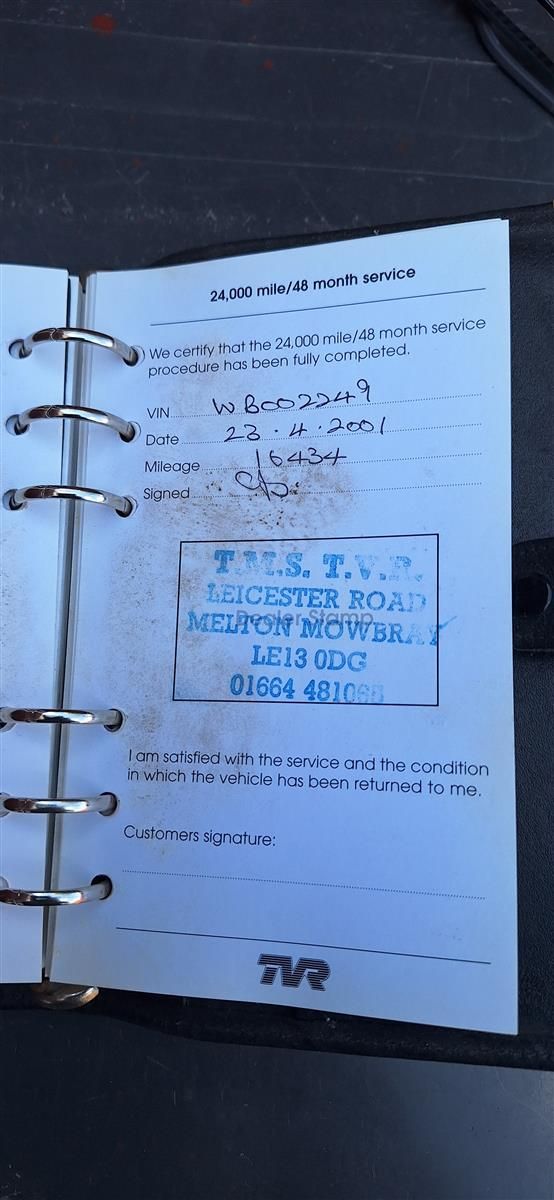 24,000 mile/48 month service
We certify that the 24,000 mile/48 month service
procedure has been fully completed.
VIN WB002249
Date 23.4.2001
Mileage 16434
Signed
T.M.S. T.V.R.
LEICESTER ROAD
Dealer Stamp
MELTON MOWBRAY
LE13 0DG
01664
I am satisfied with the service and the condition
in which the vehicle has been returned to me.
Customers signature:
TVR